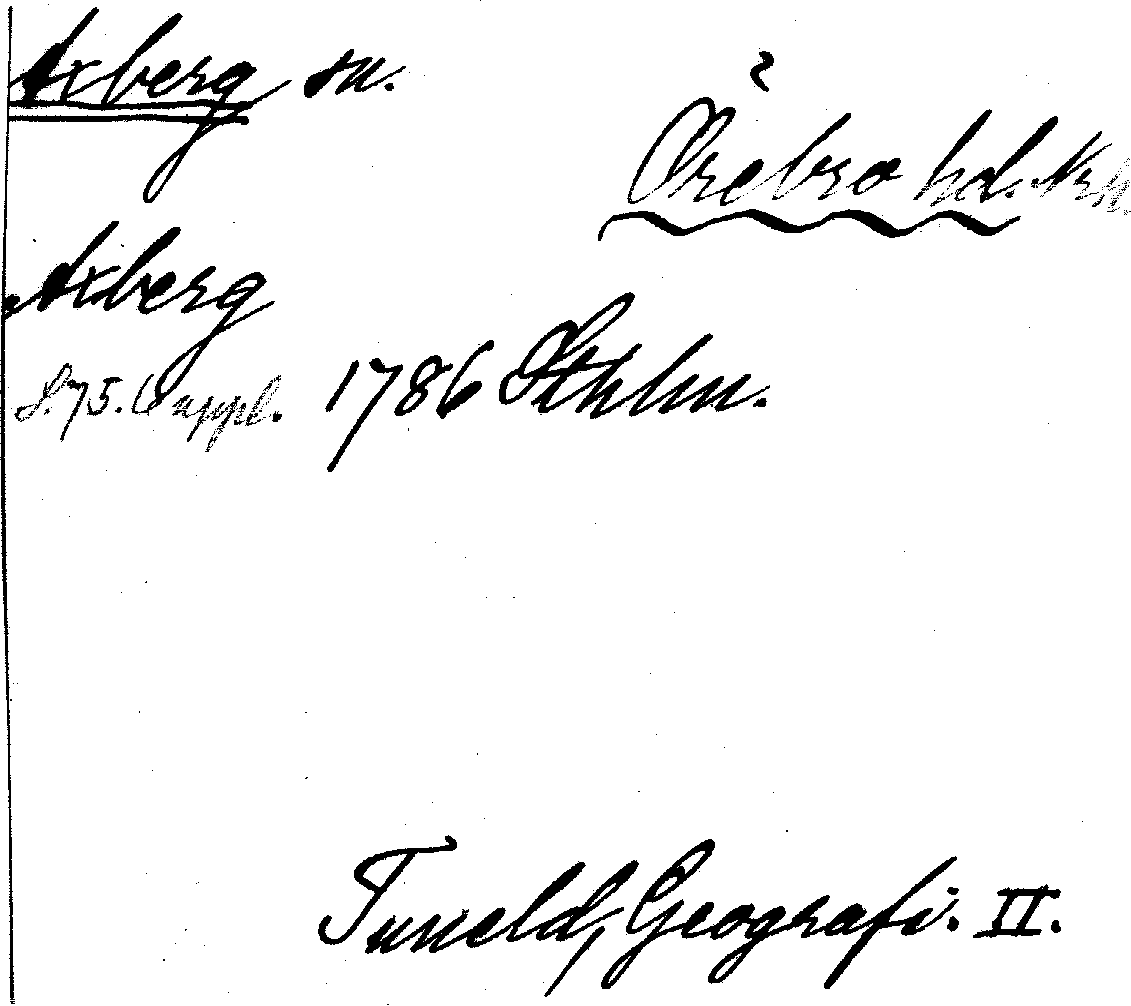 Axberg sn.
Örebro hd. Nrk.
Axberg
S. 75. Suppl. 1786 Sthlm.
Tuneld, Geografi. II.